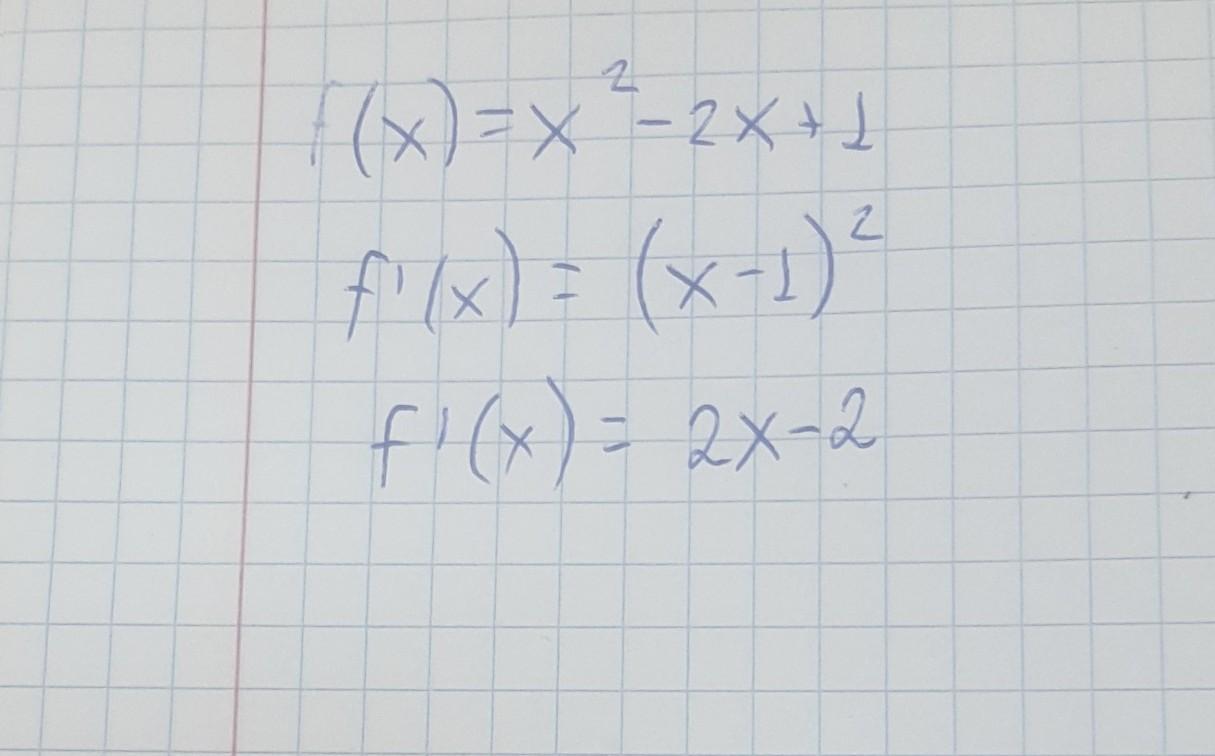 f(x)=x²-2x+1
f'(x)=(x-1)²
f'(x)=2x-2